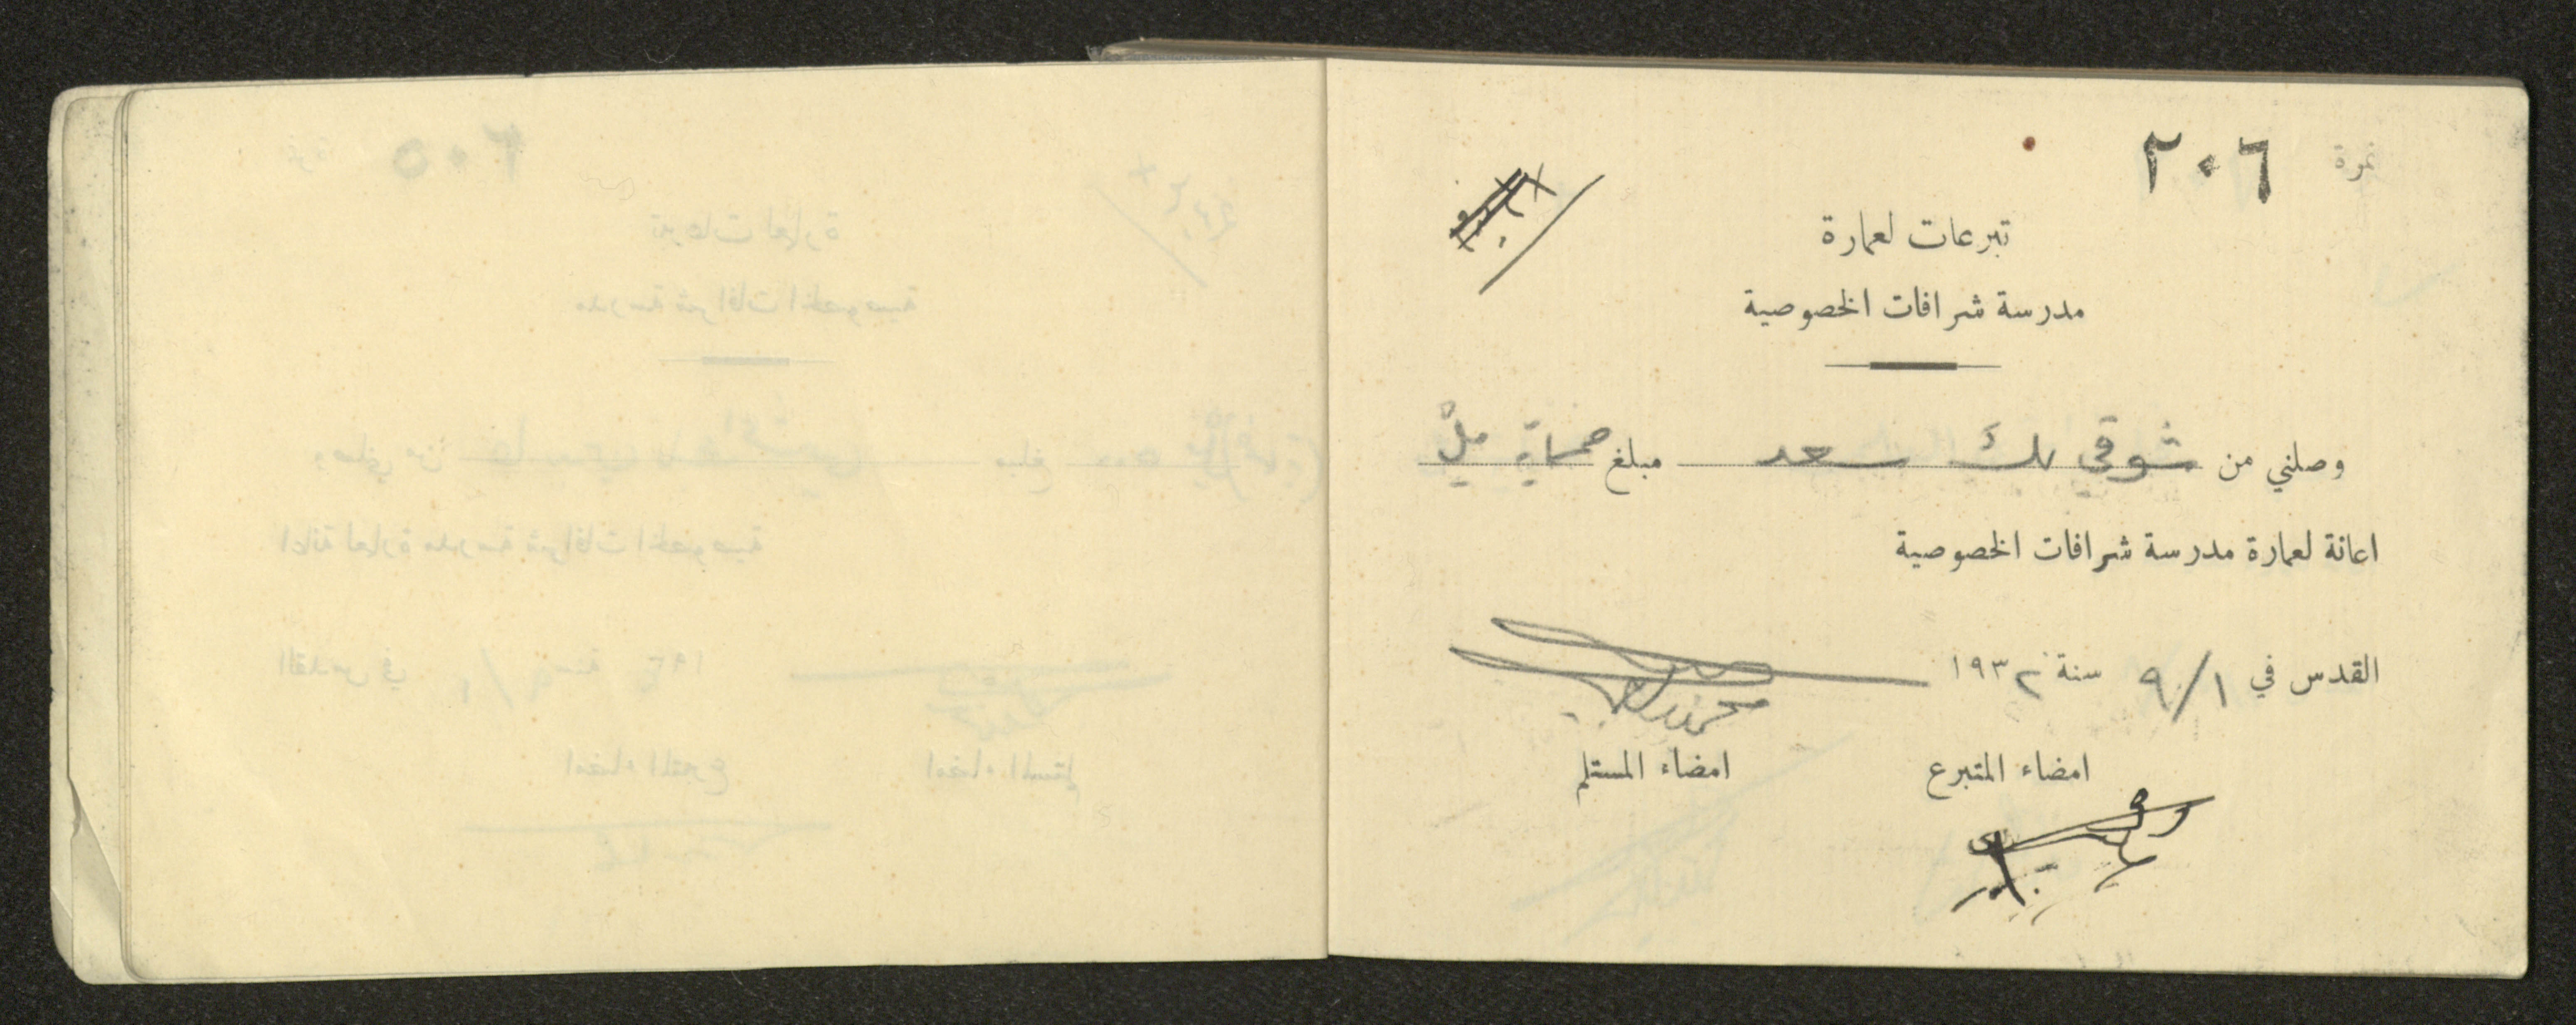 نمرة ٢٠٦
تبرعات لعمارة
مدرسة شرافات الخصوصية
وصلني من شوقي بك سعد مبلغ خمسماية ملّ
اعانة لعمارة مدرسة شرافات الخصوصية
القدس في ٩/١ سنة ١٩٣٢
امضاء المتبرع امضاء المستلم